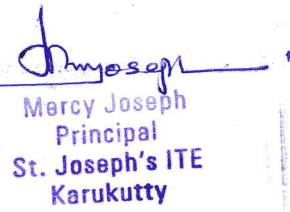 Mercy Joseph
Principal
St. Joseph's ITE
Karukutty